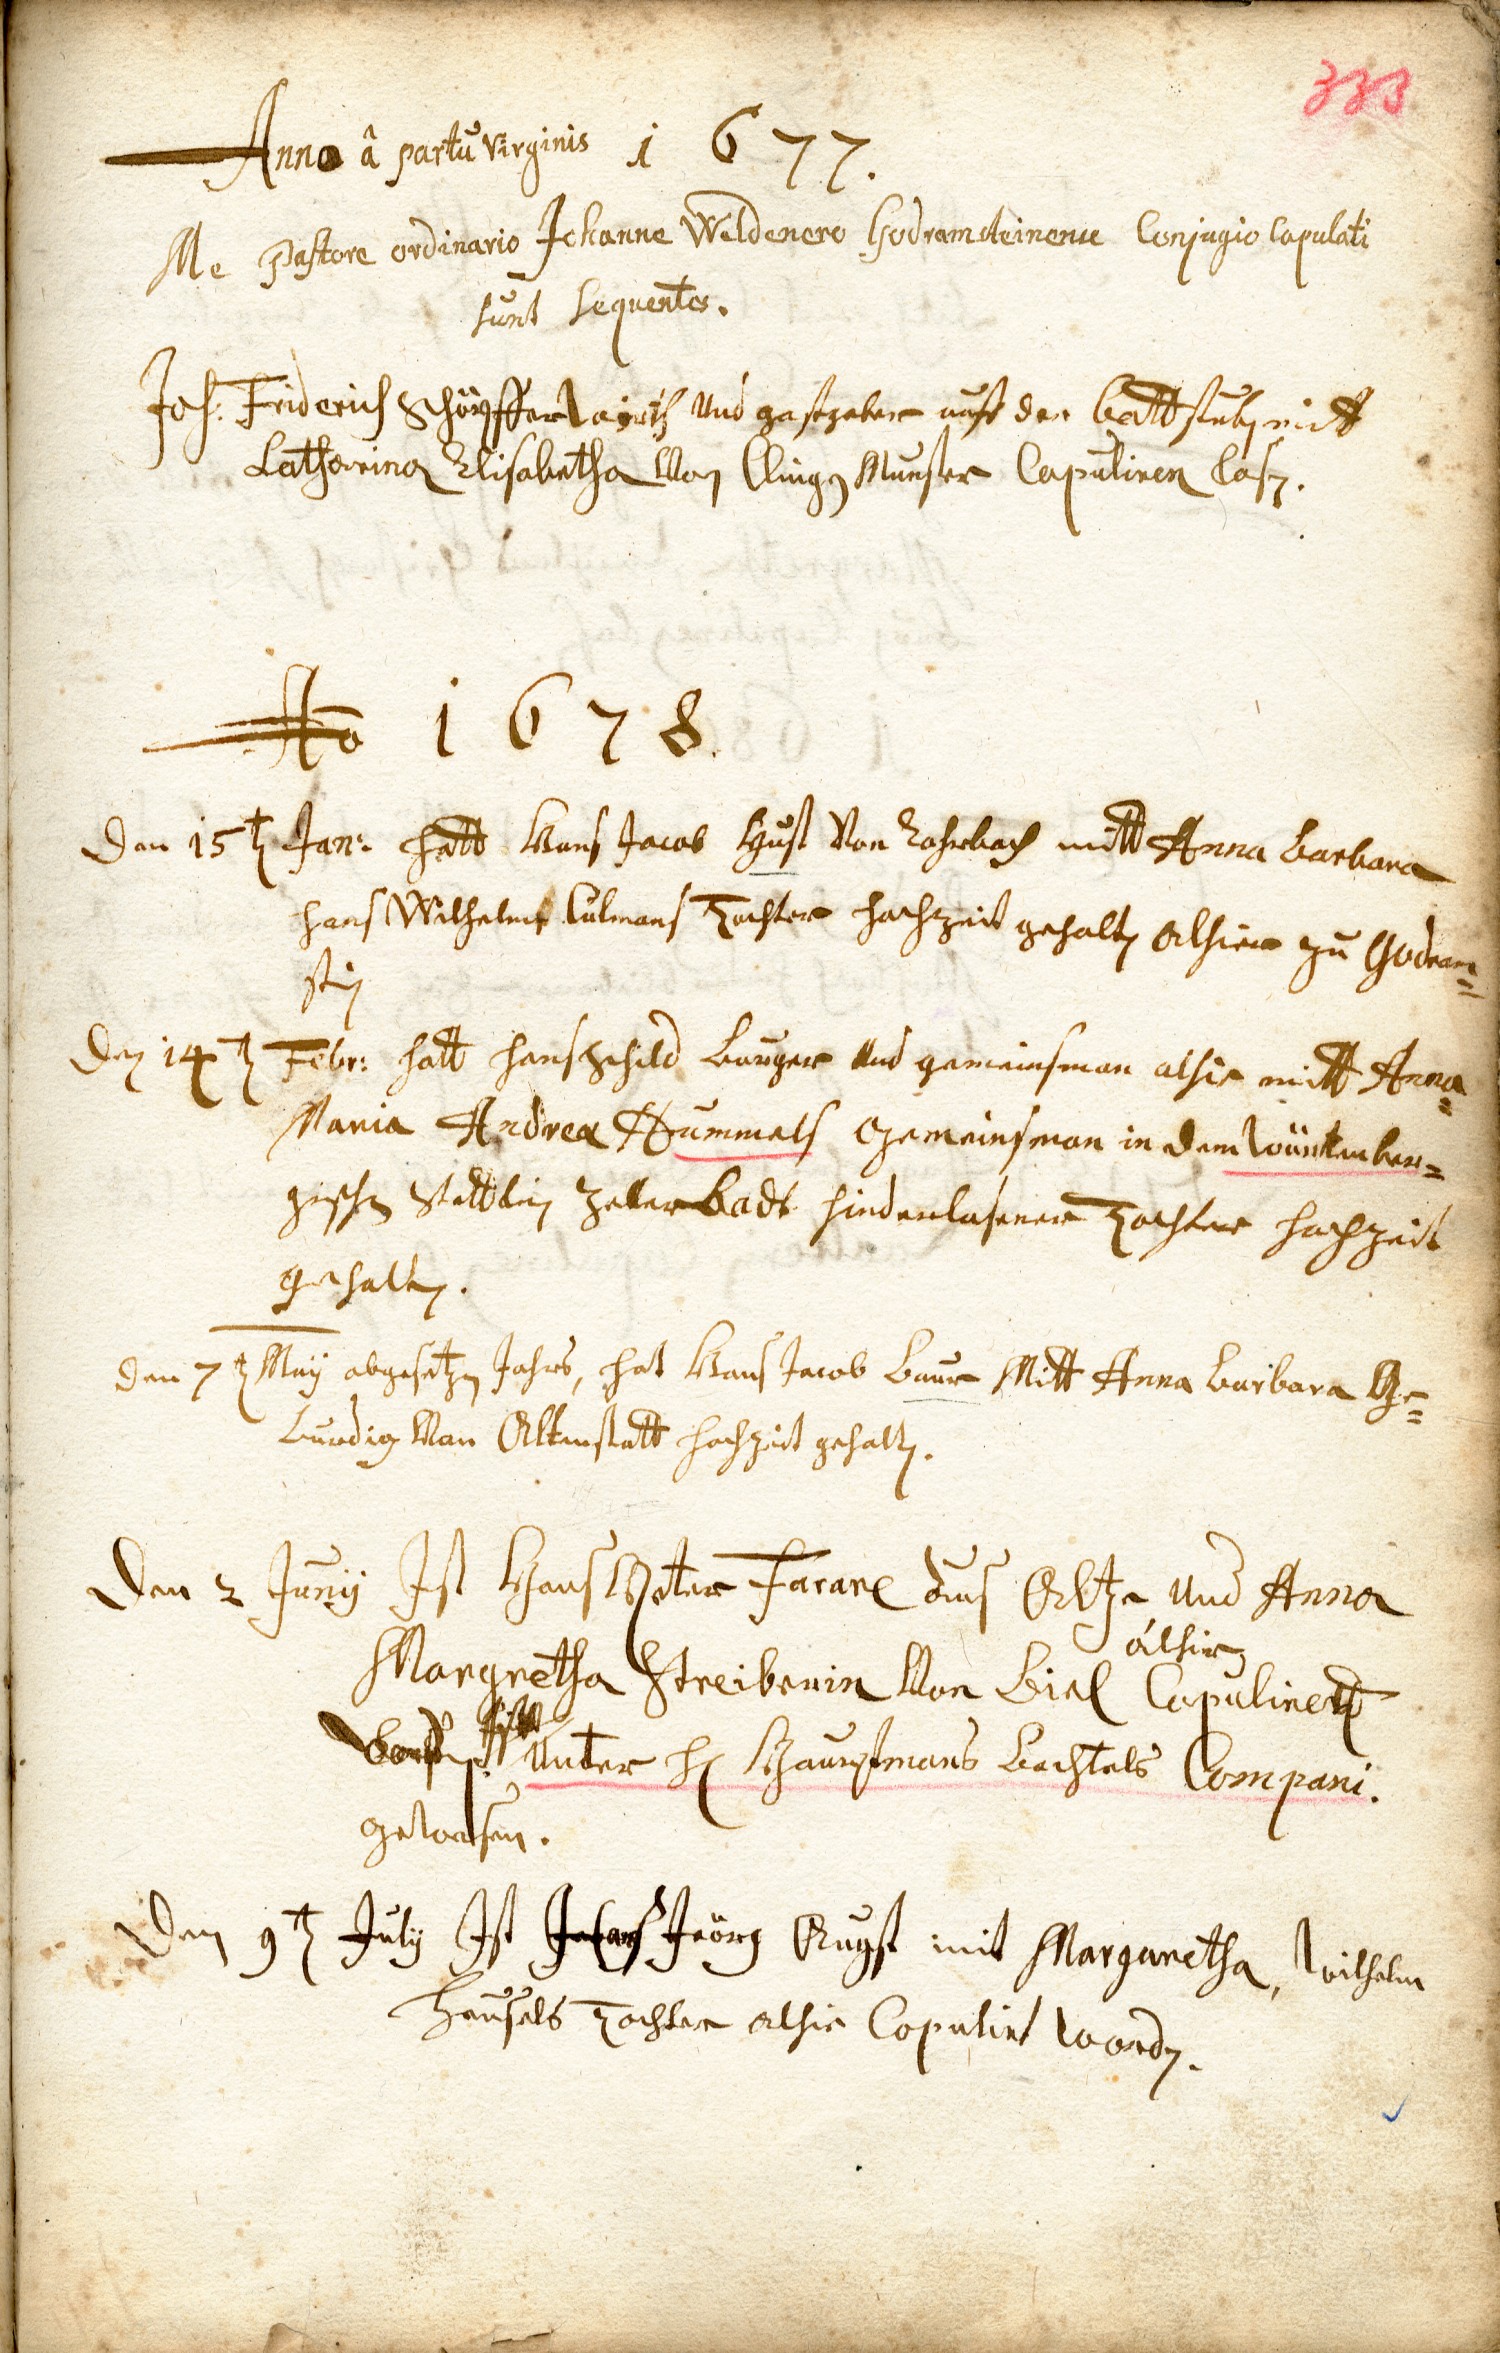 333
Anno â partu Virginis 1677.
Me Pastore ordinario Johanne Weldenero Godramsteinense Conjugio Copulati
sunt sequentes.
Joh: Friderich Schöpffer Wirth Und gastgeber auff der Battstub mitt
Catharina Elisabetha Von Cling Munster Copuliren Lasz.
Ao 1678.
Den 15t Jan: hatt Hans Jacob Hust Von Rohrbach mitt Anna Barbara
Hans Wilhelms Culmans Tochter hochzeit gehalten Alhier zu Godram=
stein
Den 14t Febr: hatt Hans Schild Burger Und gemeinsman alhie mitt Anna=
Maria Andrea Hummels Gemeinsman in dem Würtenber=
gischen Stättlein Zellerbadt hinderlasener Tochter hochzeit
gehalten.
den 7t May abgesetzen Jahrs, hat Hans Jacob Baur Mitt Anna Barbara Ge=
burdig Von Altenstatt hochzeit gehalten.
Den 2 Juny Ist Hans Peter Farare aus und Anna
alhier
Margretha Streiberin Von Biel Copuliret
Unter H Hauptmans Bechtels Compani.
gewesen.
Den 9t July Ist Jeörg August mit Margaretha, Wilhelm
Heussels Tochter alhie Copulirt worden.